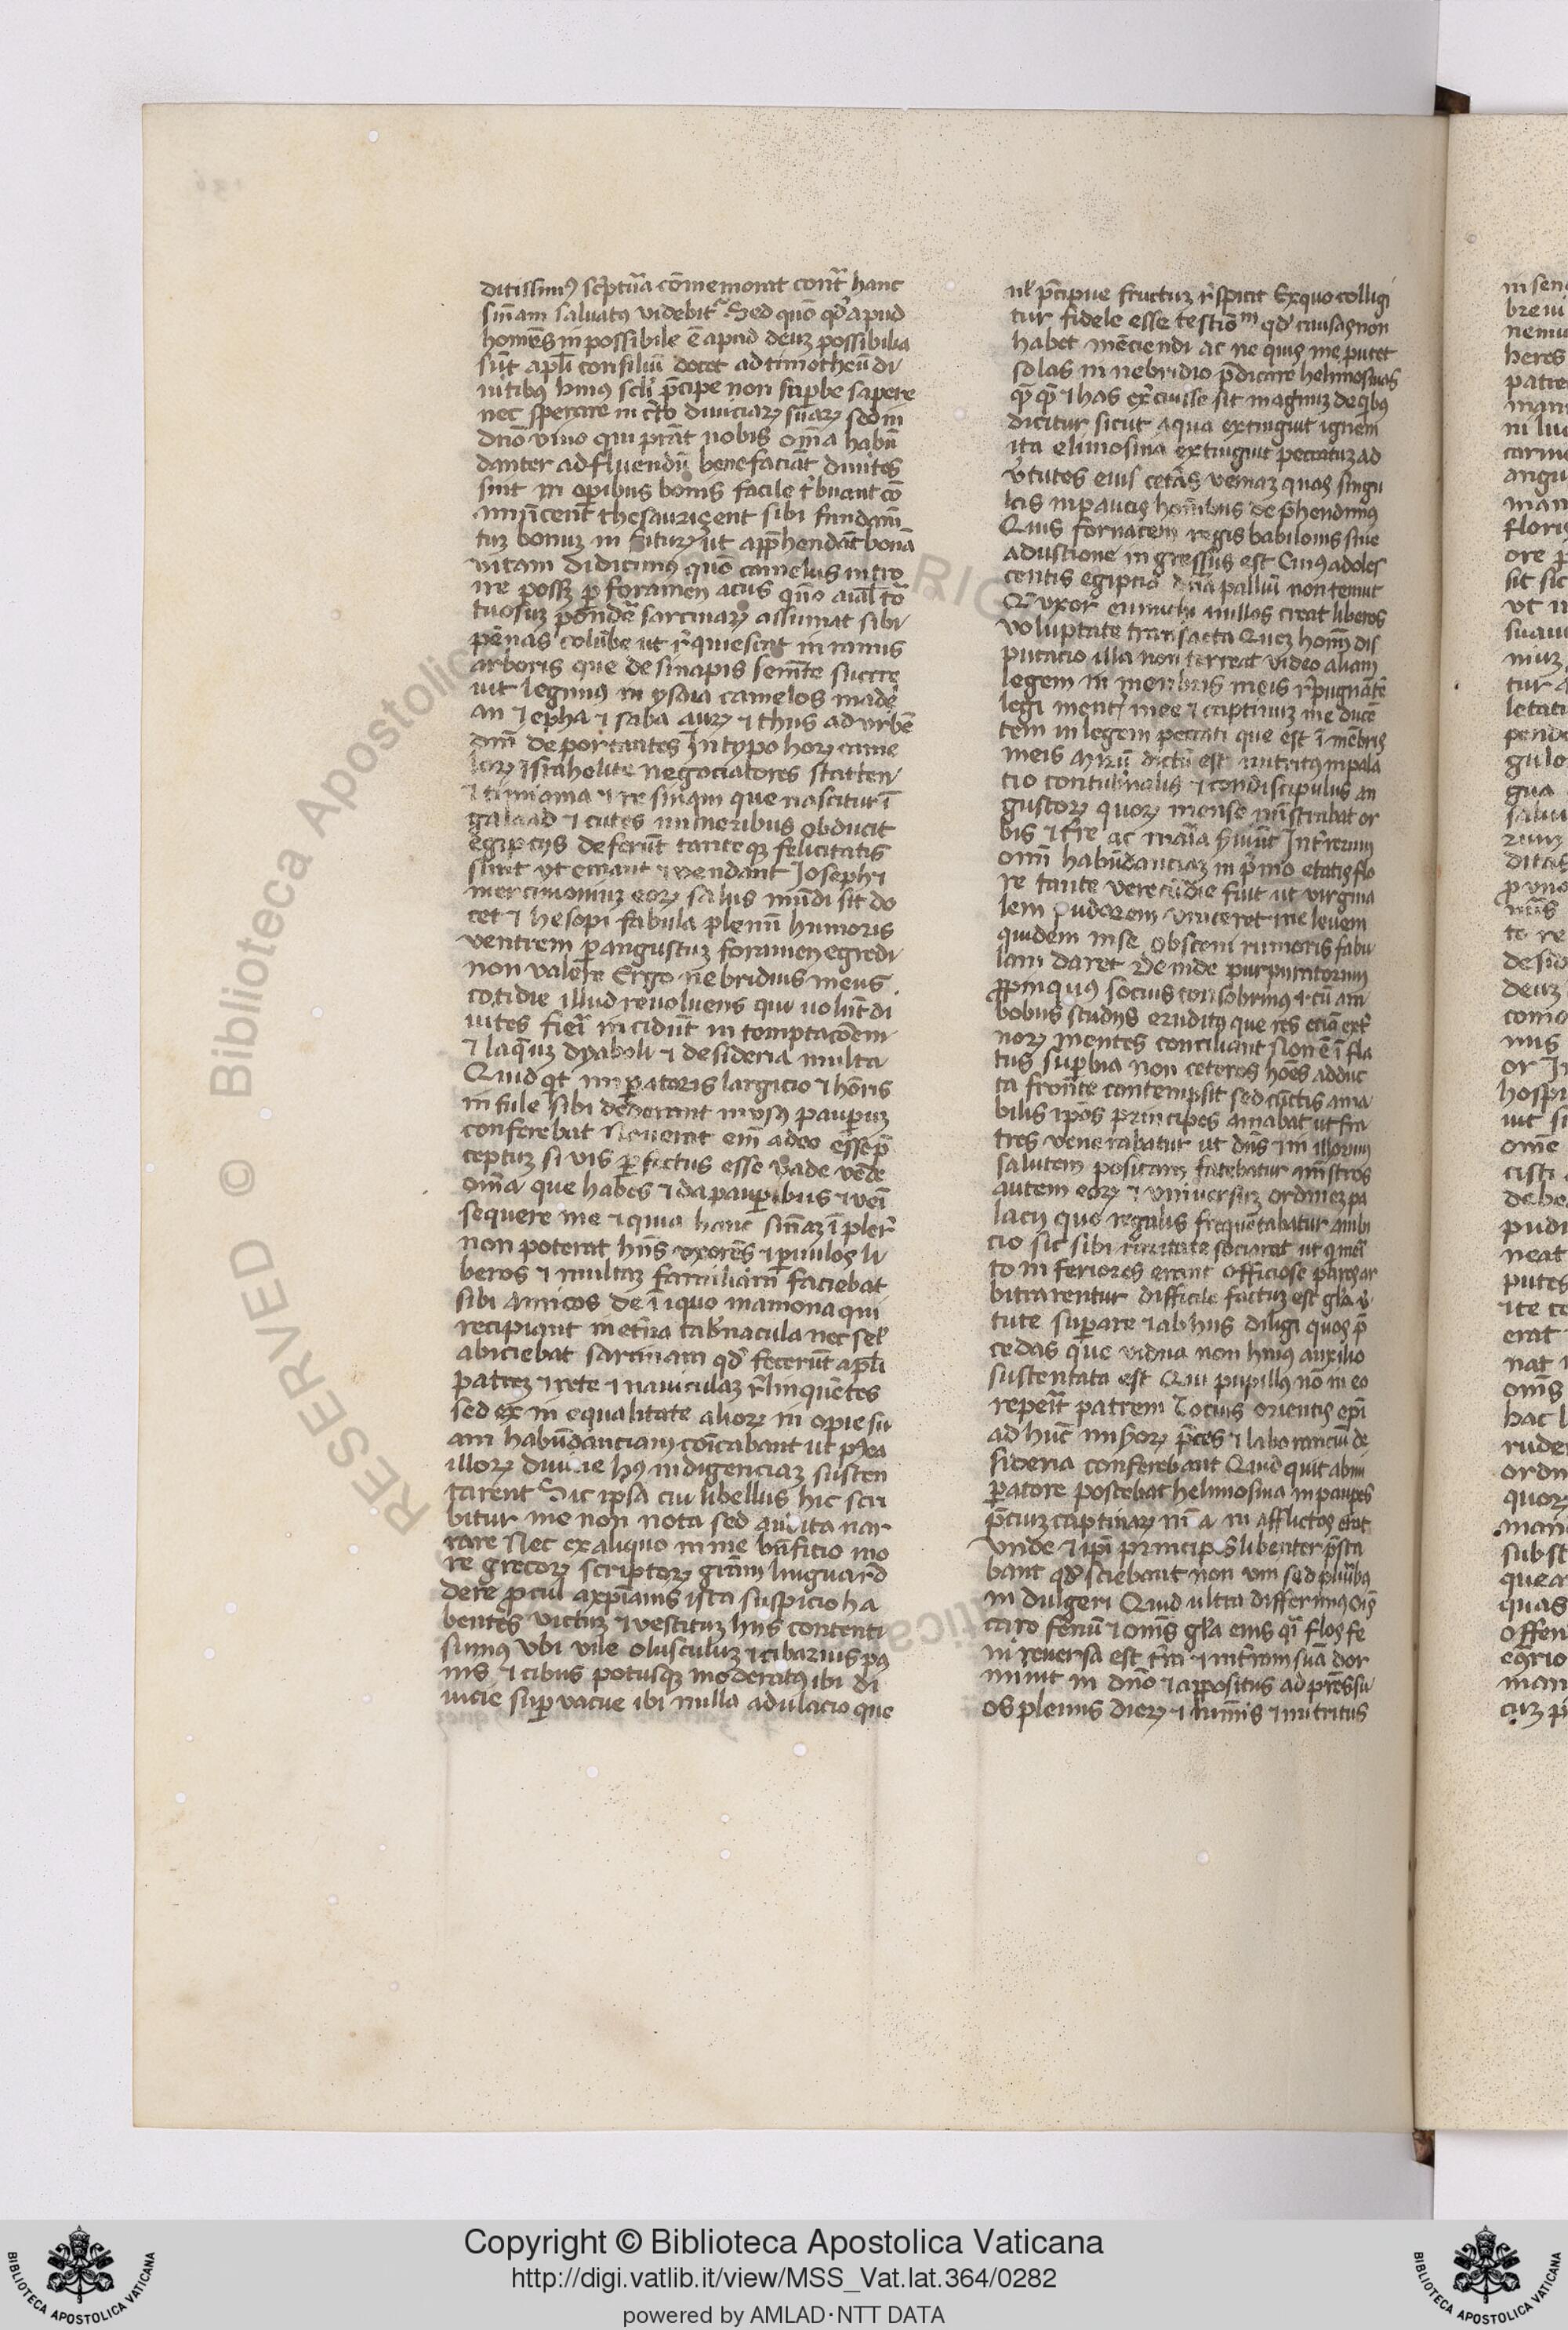 ditissimꝰ sc̃ptura cõmemorat cont̃ hanc
sñiam saluatꝰ videbit᷑ Sed quõ qd̕ apud
homĩes inpossibile ẽ apud deuz possibilia
sũt apl̃i consiliũ docet ad timotheũ di
uitibꝰ hꝰius sc̃li p̃cipe non suꝑbe sapere
nec sperare in c̃to diuiciaꝝ suaꝝ sed in
dño viuo qui pr̃at nobis om̃a habũ
danter ad fluendũ benefaciãt diuites
sint in oꝑibus bonis facile t̕buant cõ
mũicent thesaurizent sibi fundam̃
tuz bonuz in futuꝝ ut app̃hendãt bonã
vitam didicimꝰ quõ camelus intro
ire possz ꝑ foramen acus quõ aial̃ tor
tuosuz pondẽ sarcinaꝝ assumat sibi
pẽnas colũbe ut r̕quiescat in ramis
arboris que de sinapis sem̃te succre
uit legimꝰ in ysaia camelos madi
an ⁊ epha ⁊ saba auꝝ ⁊ thus ad vrbẽ
dm̃ deportantes In typo hoꝝ came
loꝝ ysrahelite negociatores stacten
⁊ timiama ⁊ resinam que nascitur ĩ
galaad ⁊ cutes uulneribus obducit
egipcijs deferũt tanteqꝫ felicitatis
sunt ut emant ⁊ vendant Josephi
mercimoniuz eoꝝ salus mũdi sit do
cet ⁊ hesopi fabula plenũ humoris
ventrem ꝑ angustuz foramen egredi
non valere Ergo nebridius meus
cotidie illud reuoluens qui uolũt di
uites fieri incidũt in temptacõem
⁊ laq̃uz dyaboli ⁊ desideria multa
Quid q̕t inꝑatoris largicio ⁊ hõris
infule sibi dederant in vsꝰ pauꝑuz
conferebat Nouerat em̃ adeo esse p̃
ceptuz si vis ꝑfectus esse vade vẽde
om̃a que habes ⁊ da pauꝑibus ⁊ veĩ
sequere me ⁊ quia hanc sñiaz ĩpler̕
non poterat hñs vxorẽs ⁊ ꝑuulos li
beros ⁊ multaz familiam faciebat
sibi amicos de iniquo mamona qui
recipiant in et̃na tab̕nacula nec sel̕
abiciebat sarcinam qd̕ fecerũt apl̃i
patrez ⁊ rete ⁊ nauiculaz r̕linquẽtes
sed ex in equalitate alioꝝ inopie su
am habũdanciam cõicabant ut pꝰea
illoꝝ diuicie hꝰ indigenciaz susten
tarent Sic ipsa cui libellus hic scri
bitur me non nota sed audita nar
rare Nec ex aliquo in me bñficio mo
re grecoꝝ scriptoꝝ gr̃am lingua r̃d
dere procul a xp̃ianis ista suspicio ha
bentes victuz ⁊ vestituz hijs contenti
sumꝰ vbi vile olusculuz ⁊ cibarius pa
nis ⁊ cibus potusqꝫ moderatꝰ ibi di
uicie suꝑvacue ibi nulla adulacio que
nl̕ p̃cipue fructuz r̕spicit Ex quo colligi
tur fidele esse testiõm qd̕ causas non
habet mẽciendi ac ne quis me putet
solas in nebridio p̃dicare helimosinas
q̃q̃ ⁊ has ex̕cuisse sit magnuz de qbꝰ
dicitur sicut aqua extinguit ignem
ita elimosina extinguit peccatuz ad
v̕tutes eius cetas veniaz quas singu
las in paucis homĩbus de p̃hendimꝰ
Quis fornacem regis babilonis sine
adustione ingressus est Cuius adoles
centis egipcia dña palliũ non tenuit
Q̃ vxor eunuchi nullos creat liberos
voluptate transacta Quez hom̃ dis
putacio illa non terreat video aliam
legem in menbris meis r̕pugnãtẽ
legi mentꝭ mee ⁊ captiuuz me ducẽ
tem in legem peccati que est ĩ mẽbris
meis Miꝝ dictũ est nutritꝰ in pala
cio contub̕nalis ⁊ condiscipulus au
gustoꝝ quoꝝ mense mĩstrabat or
bis ⁊ t̕re ac maria s̕uiũt Int̕ rerum
om̃ habũdanciaz in p̕mo etatis flo
re tante verecũdie fuit ut virgina
lem pudorem vinceret ne leuem
quidem in se obsceni rumoris fabu
lam daret Deinde purpuratorum
ꝓpinquꝰ socius consobrinꝰ ⁊ cũ am
bobus studijs eruditꝰ que res eciã ext̕
noꝝ mentes conciliant Non ẽ ĩfla
tus suꝑbia non ceteros hoẽs adduc
ta fronte contempsit sed cũctis ama
bilis ip̃os principes amabat ut fra
tres venerabatur ut dños ⁊ in illorum
salutem positam fatebatur mĩstros
autem eoꝝ ⁊ vniuersuz ordinez pa
lacij quo regalis frequẽtabatur ambi
cio sic sibi caritate sociarat ut q̕ meri
to inferiores erant officiose pares ar
bitrarentur difficile factuz est gl̃ia v̕
tute suꝑare ⁊ ab hijs diligi quos p̃
cedas que vidua non huius auxilio
sustentata est Qui pupillꝰ nõ in eo
reperit patrem Tocius orientis epĩ
ad hũc miseroꝝ p̃ces ⁊ laboranciũ de
sideria conferebant Quid quit ab im
ꝑatore poscebat helimosina in pauꝑes
p̃ciuz captiuaꝝ mĩa in afflictos erat
Vnde ⁊ ip̃i principes libenter p̃sta
bant qd̕ sciebant non vni sed plurib̃ꝰ
indulgeri Quid ultra differimus Ois̃
caro fenũ ⁊ omĩs gl̃a eius q̃i flos fe
ni reuersa est t̕ra ⁊ in t̕ram suã dor
miuit in dño ⁊ appositus ad pr̃es su
os plenus dieꝝ ⁊ luminis ⁊ nutritus
Copyright © Biblioteca Apostolica Vaticana
http://digi.vatlib.it/view/MSS_Vat.lat.364/0282
powered by AMLAD·NTT DATA